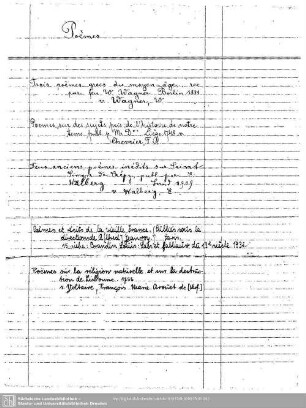 Poèmes
Trois poèmes grecs du moyen-âge rec.
par feu W. Wagner Berlin 1881
v. Wagner, W.
Poèmes sur des sujets pris de l'histoire de notre
tems. publ. p. Mr. D*** Liège 1758 v.
Chevrier F. A.
Deux anciens poèmes inédits sur Saint
Simon de Crépy publ. par E.
Walberg Lund 1909
v. Walberg E.
Poèmes et de la vieille France. (Publiés sous la
direction de Alfred Jeanroy.) Paris.
siècle. 1932.
Poèmes sur la religion naturelle et sur la destruction
de Lisbonne. 1756
v. Voltaire, François Marie Arouet de (Vol.)
Sächsische Landesbibliothek –
Staats- und Universitätsbibliothek Dresden